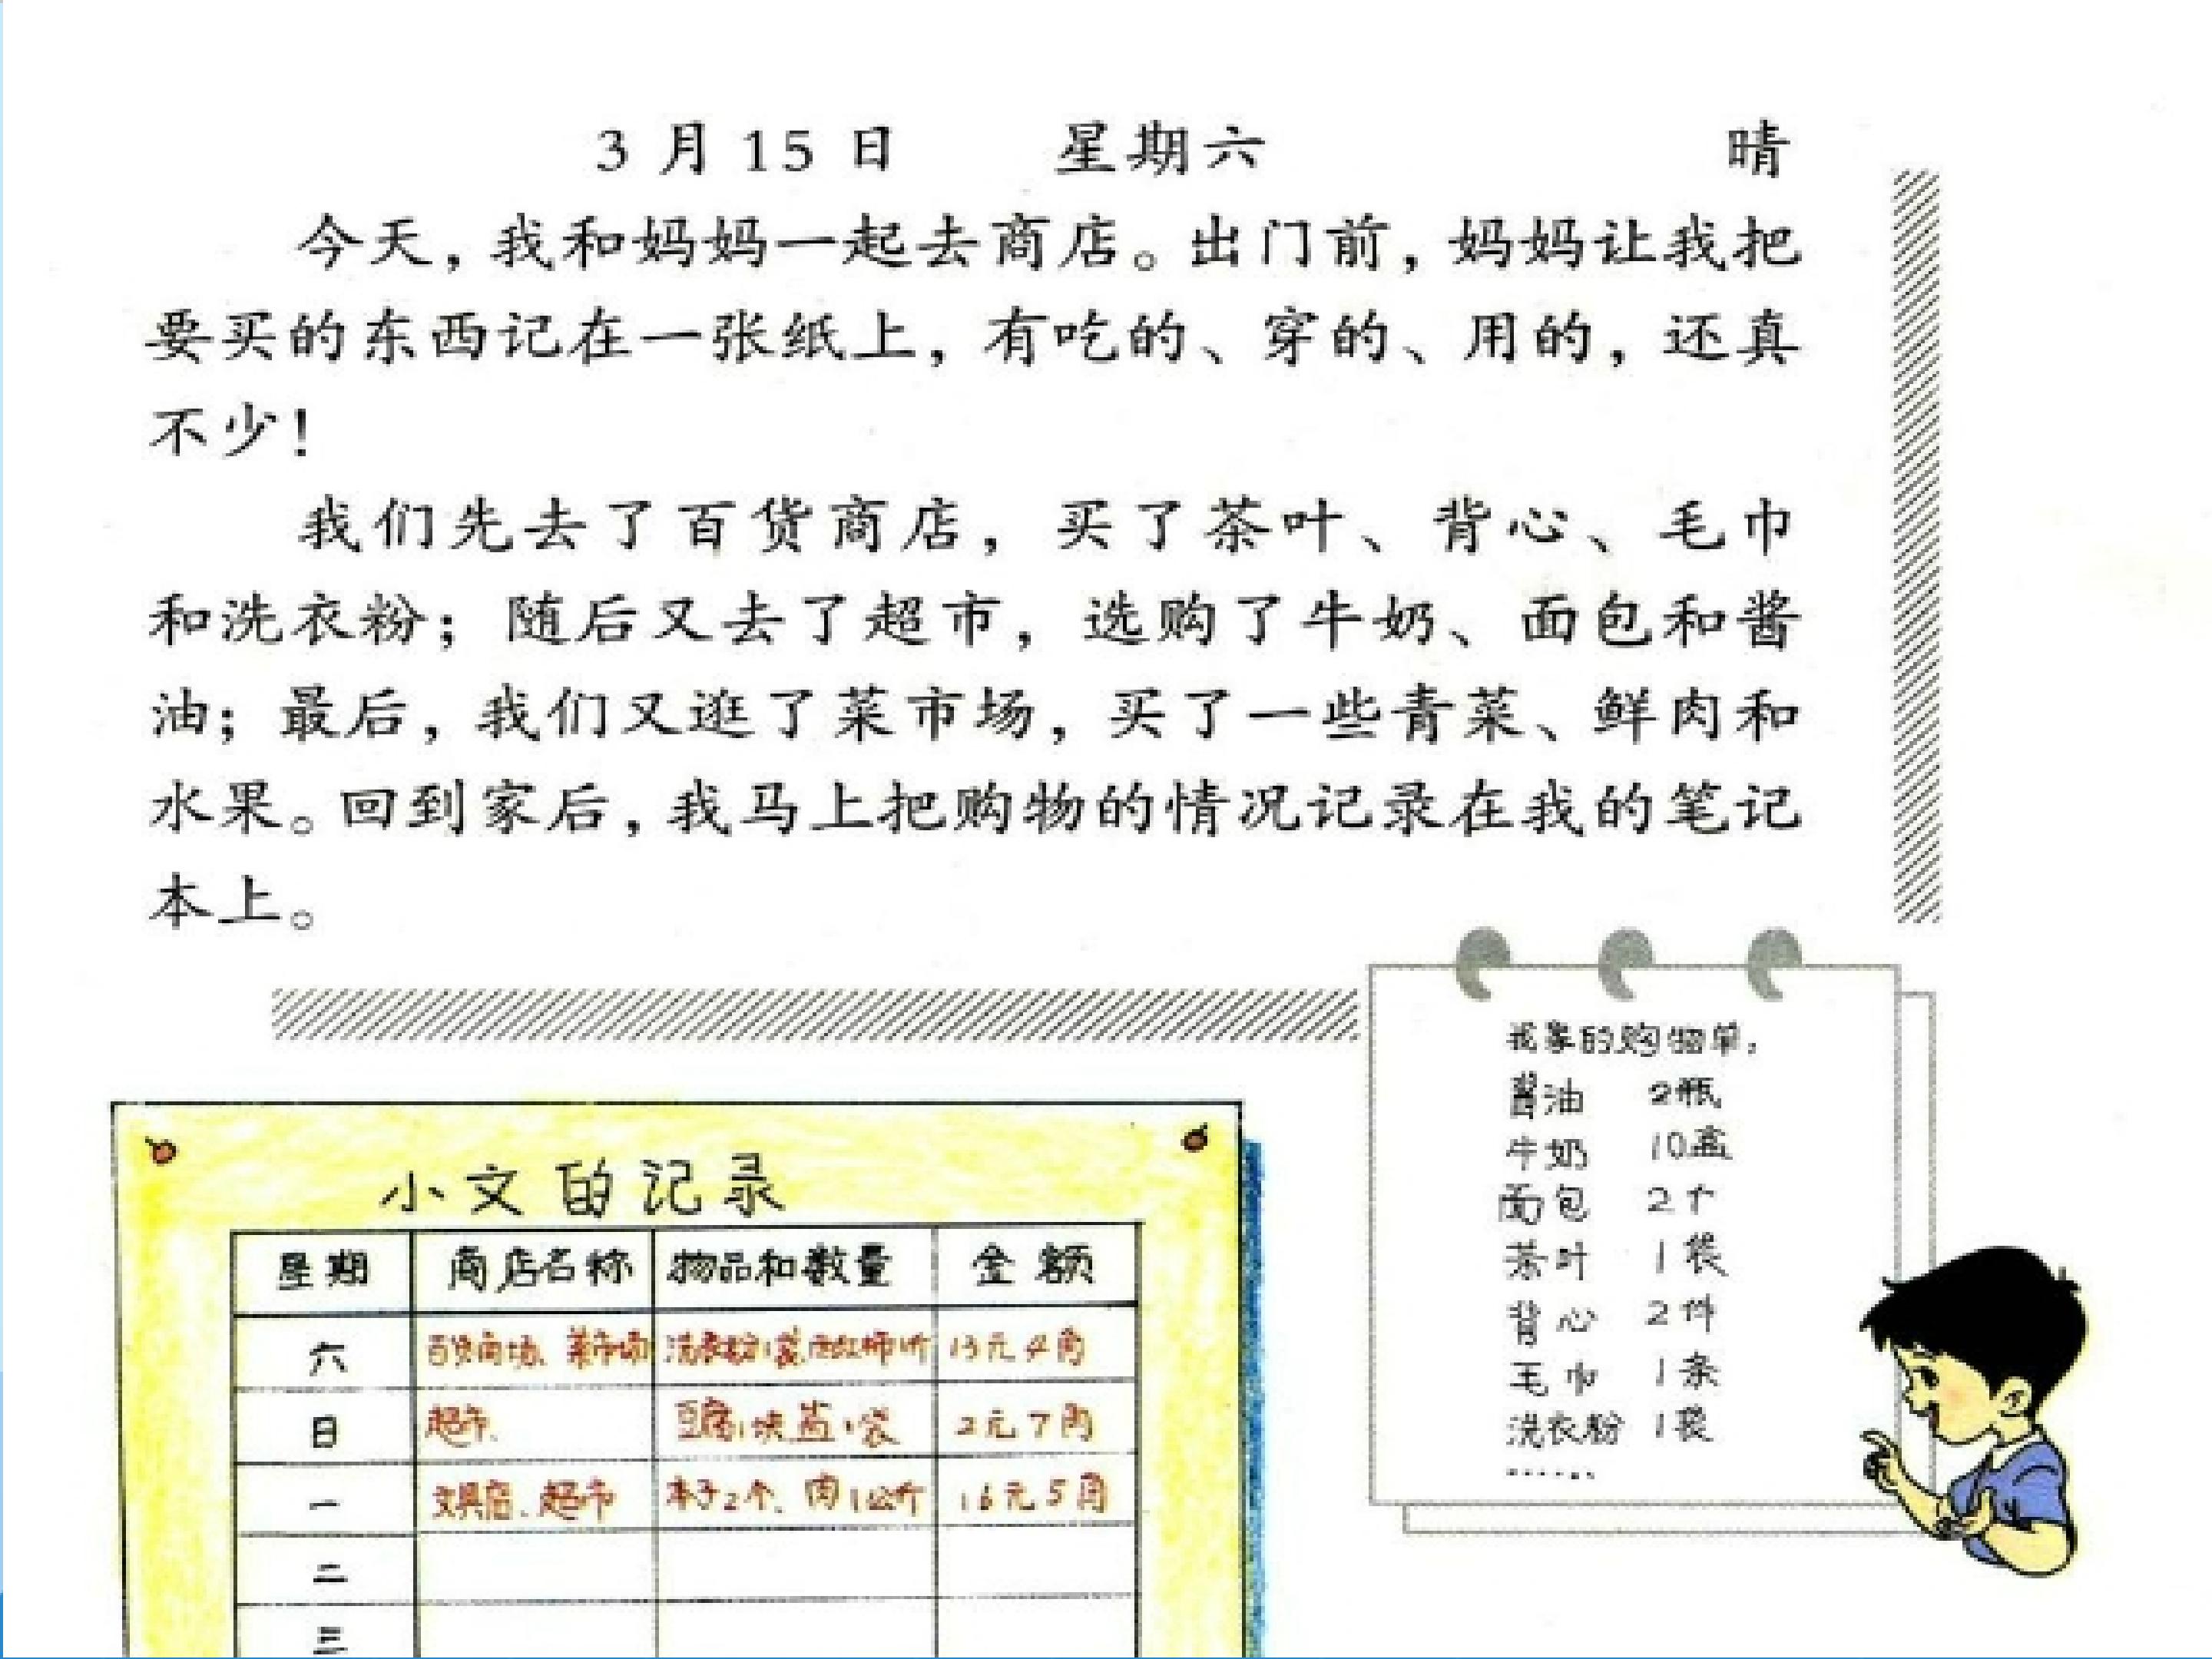 3月15日 星期六 晴
今天，我和妈妈一起去商店。出门前，妈妈让我把
要买的东西记在一张纸上，有吃的、穿的、用的，还真
不少！
我们先去了百货商店，买了茶叶、背心、毛巾
和洗衣粉；随后又去了超市，选购了牛奶、面包和酱
油；最后，我们又逛了菜市场，买了一些青菜、鲜肉和
水果。回到家后，我马上把购物的情况记录在我的笔记
本上。
我家的购物单，
酱油 2瓶
牛奶 10盒
面包 2个
茶叶 1袋
背心 2件
毛巾 1条
洗衣粉 1袋
……
小文的记录
星期 商店名称 物品和数量 金额
六 百货商场、菜市场 洗衣粉1袋 13元4角
日 超市 豆腐1块 盐1袋 2元7角
一 文具店、超市 本子2个、肉1公斤 16元5角
二
三